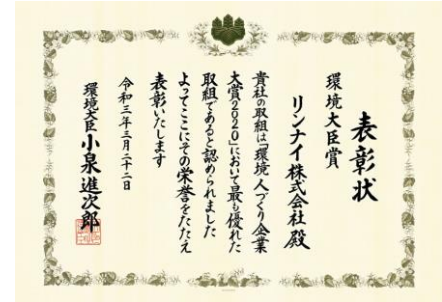 表彰状
環境大臣賞
リンナイ株式会社殿
貴社の取組は「環境人づくり企業
大賞2020」において最も優れた
取組であると認められました
よってここにその栄誉をたたえ
表彰いたします
令和三年三月二十二日
環境大臣 小泉進次郎